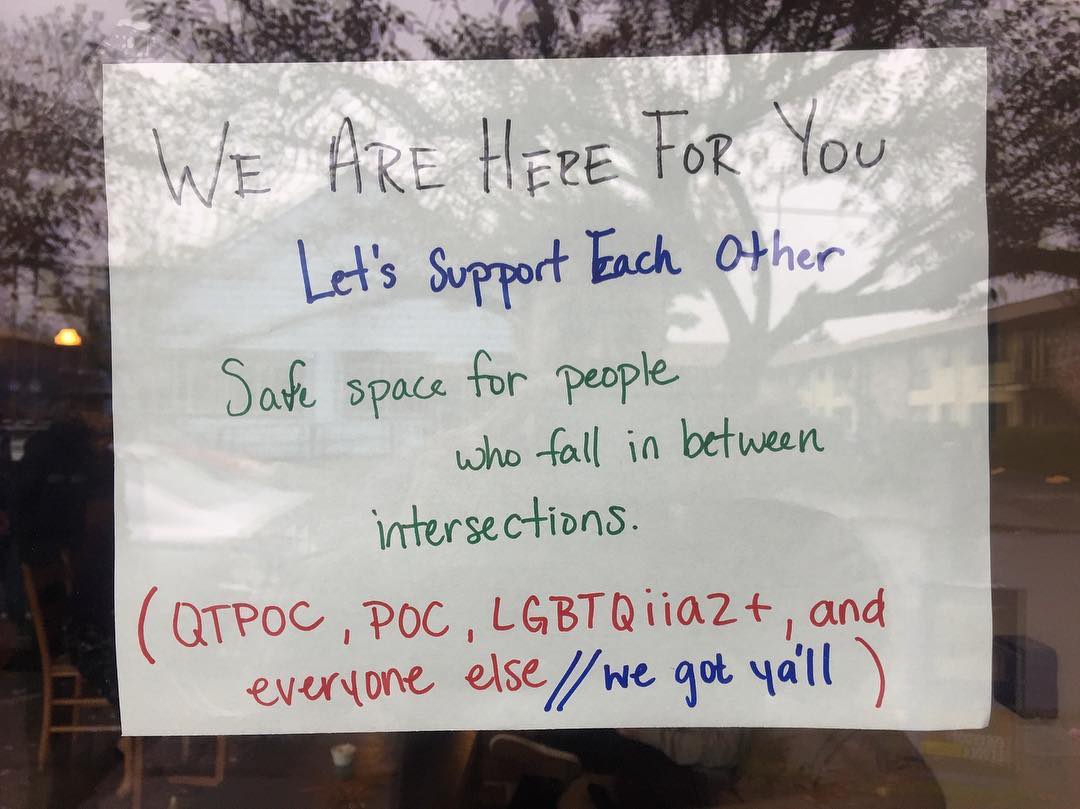 WE ARE HERE FOR YOU
Let's Support Each Other
Safe space for people
who fall in between
intersections.
(QTPOC, POC, LGBTQiia2+, and
everyone else//we got ya'll)